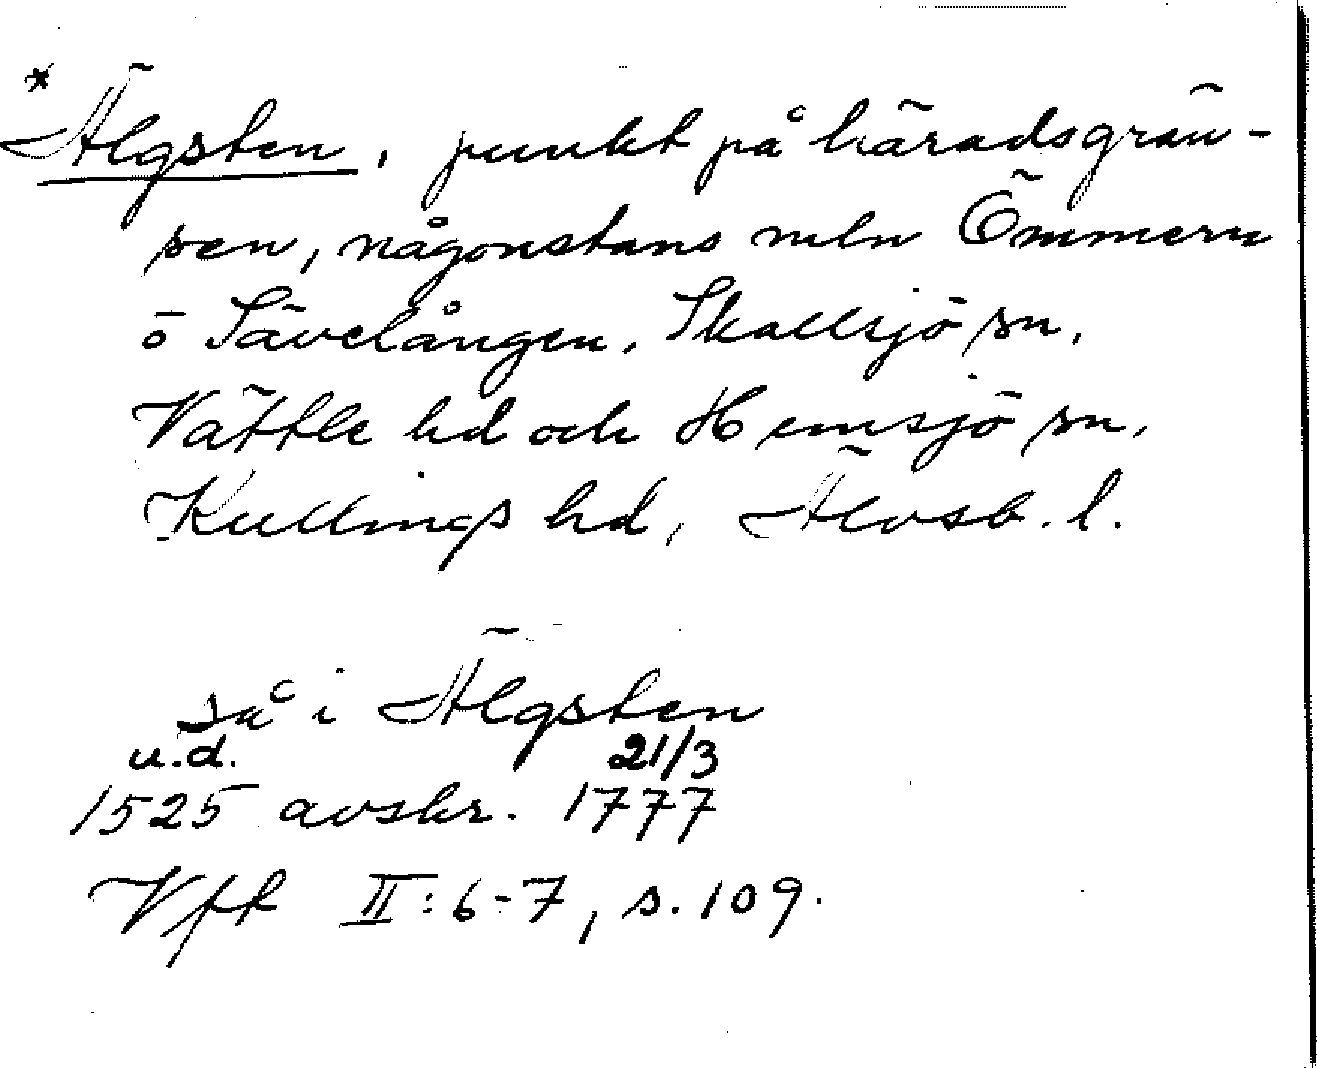 *Älgsten, punkt på häradsgrän-
sen, någonstans mln Ömmern
o Sävelången, Skallsjö sn,
Vättle hd och Hemsjö sn,
Kullings hd, Älvsb. l.
så i Älgsten
u.d. 21/3
1525 avskr. 1777
Vft II:6-7, s. 109.